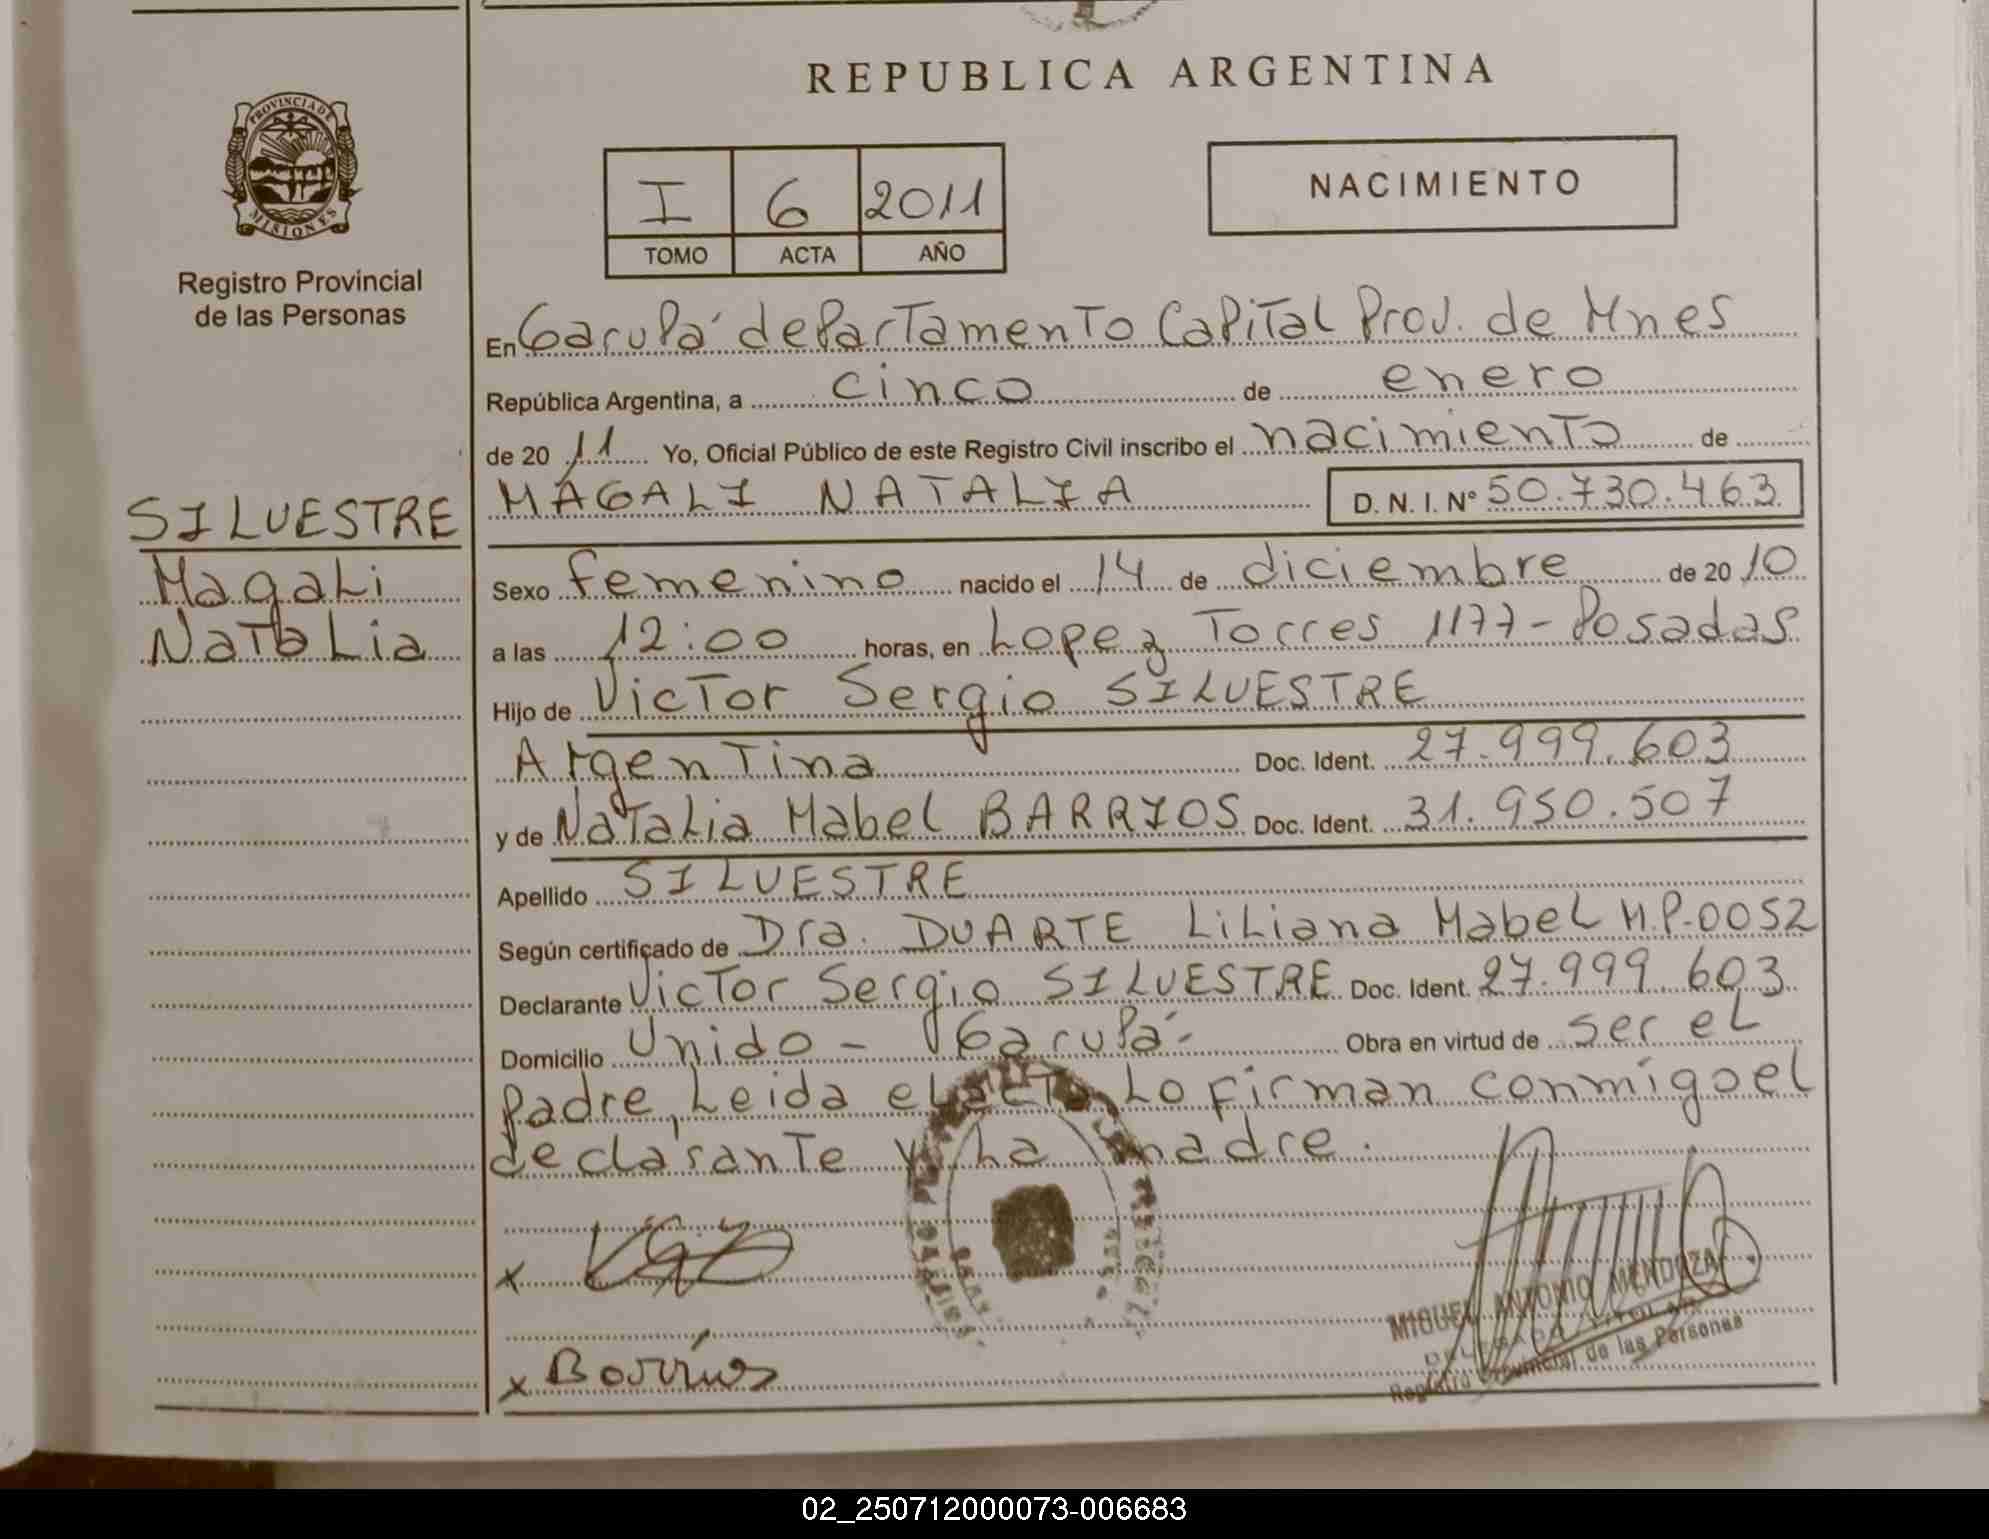 REPUBLICA ARGENTINA
PROVINCIA DE
MISIONES
Registro Provincial
de las Personas
I 6 2011
TOMO ACTA AÑO
NACIMIENTO
En Garupá departamento Capital Prov. de Mnes
República Argentina, a cinco de enero
de 20 11 Yo, Oficial Público de este Registro Civil inscribo el nacimiento de
SILVESTRE
Magali
Natalia
MAGALI NATALIA D. N. I. Nº 50.730.463
Sexo femenino nacido el 14 de diciembre de 20 10
a las 12:00 horas, en Lopez Torres 1177 - Posadas
Hijo de Victor Sergio SILVESTRE
Argentina Doc. Ident. 27.999.603
y de Natalia Mabel BARRIOS Doc. Ident. 31.950.507
Apellido SILVESTRE
Según certificado de Dra. DUARTE Liliana Mabel M.P. 0052
Declarante Victor Sergio SILVESTRE Doc. Ident. 27.999.603
Domicilio Unido - Garupá - Obra en virtud de ser el
padre, Leida el acta, lo firman conmigo el
declarante y la madre.
x
MIGUEL ANTONIO MENDOZA
Registro Provincial de las Personas
x Barrios
02_250712000073-006683